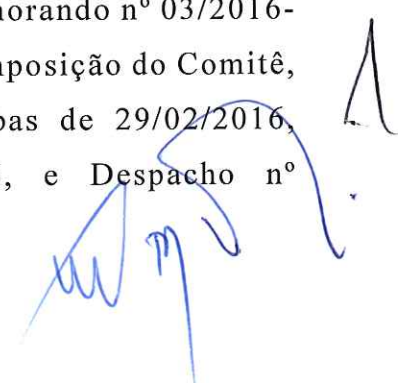 norando nº 03/2016-
nposição do Comitê,
bas de 29/02/2016,
, e Despacho nº